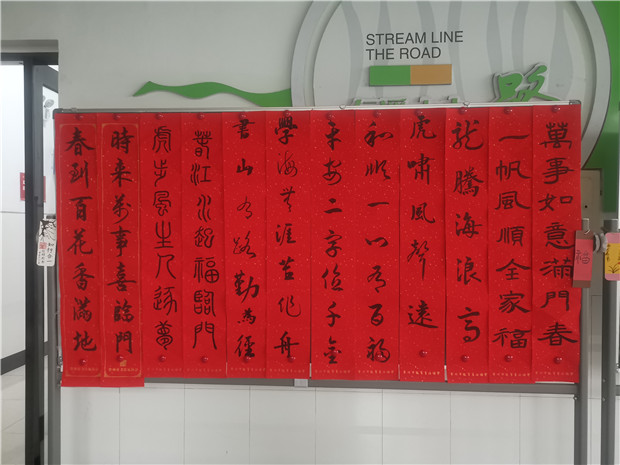 STREAM LINE
THE ROAD
路
萬事如意滿門春
一帆風順全家福
龍騰海浪高
虎嘯風聲遠
和順一门有百福
平安二字值千金
學海無涯苦作舟
書山有路勤為徑
春江水起福臨門
虎步風生人
時来萬事喜臨門
春到百花香滿地
福